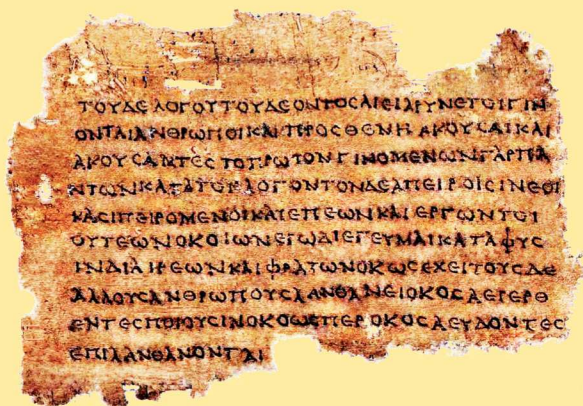 ΤΟΥΔΕΛΟΓΟΥΤΟΥΔΕΟΝΤΟϹΑΙΕΙΑΞΥΝΕΤΟΙΓΙΝ
ΟΝΤΑΙΑΝΘΡΩΠΟΙΚΑΙΠΡΟϹΘΕΝΗΑΚΟΥϹΑΙΚΑΙ
ΑΚΟΥϹΑΝΤΕϹΤΟΠΡΩΤΟΝΓΙΝΟΜΕΝΩΝΓΑΡΠΑ
ΝΤΩΝΚΑΤΑΤΟΝΛΟΓΟΝΤΟΝΔΕΑΠΕΙΡΟΙϹΙΝΕΟΙ
ΚΑϹΙΠΕΙΡΟΜΕΝΟΙΚΑΙΕΠΕΩΝΚΑΙΕΡΓΩΝΤΟΙ
ΟΥΤΕΩΝΟΚΟΙΩΝΕΓΩΔΙΕΓΕΥΜΑΙΚΑΤΑΦΥϹ
ΙΝΔΙΑΙΡΕΩΝΚΑΙΦΡΑΖΩΝΟΚΩϹΕΧΕΙΤΟΥϹΔΕ
ΑΛΛΟΥϹΑΝΘΡΩΠΟΥϹΛΑΝΘΑΝΕΙΟΚΟϹΑΕΓΕΡΘ
ΕΝΤΕϹΠΟΙΟΥϹΙΝΟΚΩϹΠΕΡΟΚΟϹΑΕΥΔΟΝΤΕϹ
ΕΠΙΛΑΝΘΑΝΟΝΤΑΙ